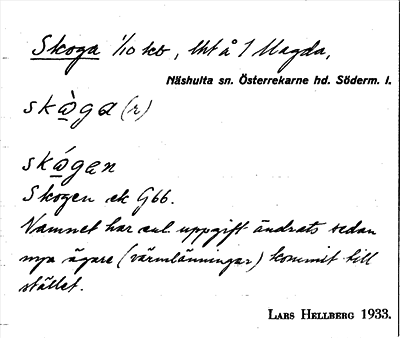 Skoga 1/10 kb, lht å 1 Magda,
Näshulta sn. Österrekarne hd. Söderm. l.
skὼ̲ga (r)
skώ̲gen
Skogen ek G66.
Namnet har enl. uppgift ändrats sedan
nya ägare (värmlänningar) kommit till
stället.
LARS HELLBERG 1933.